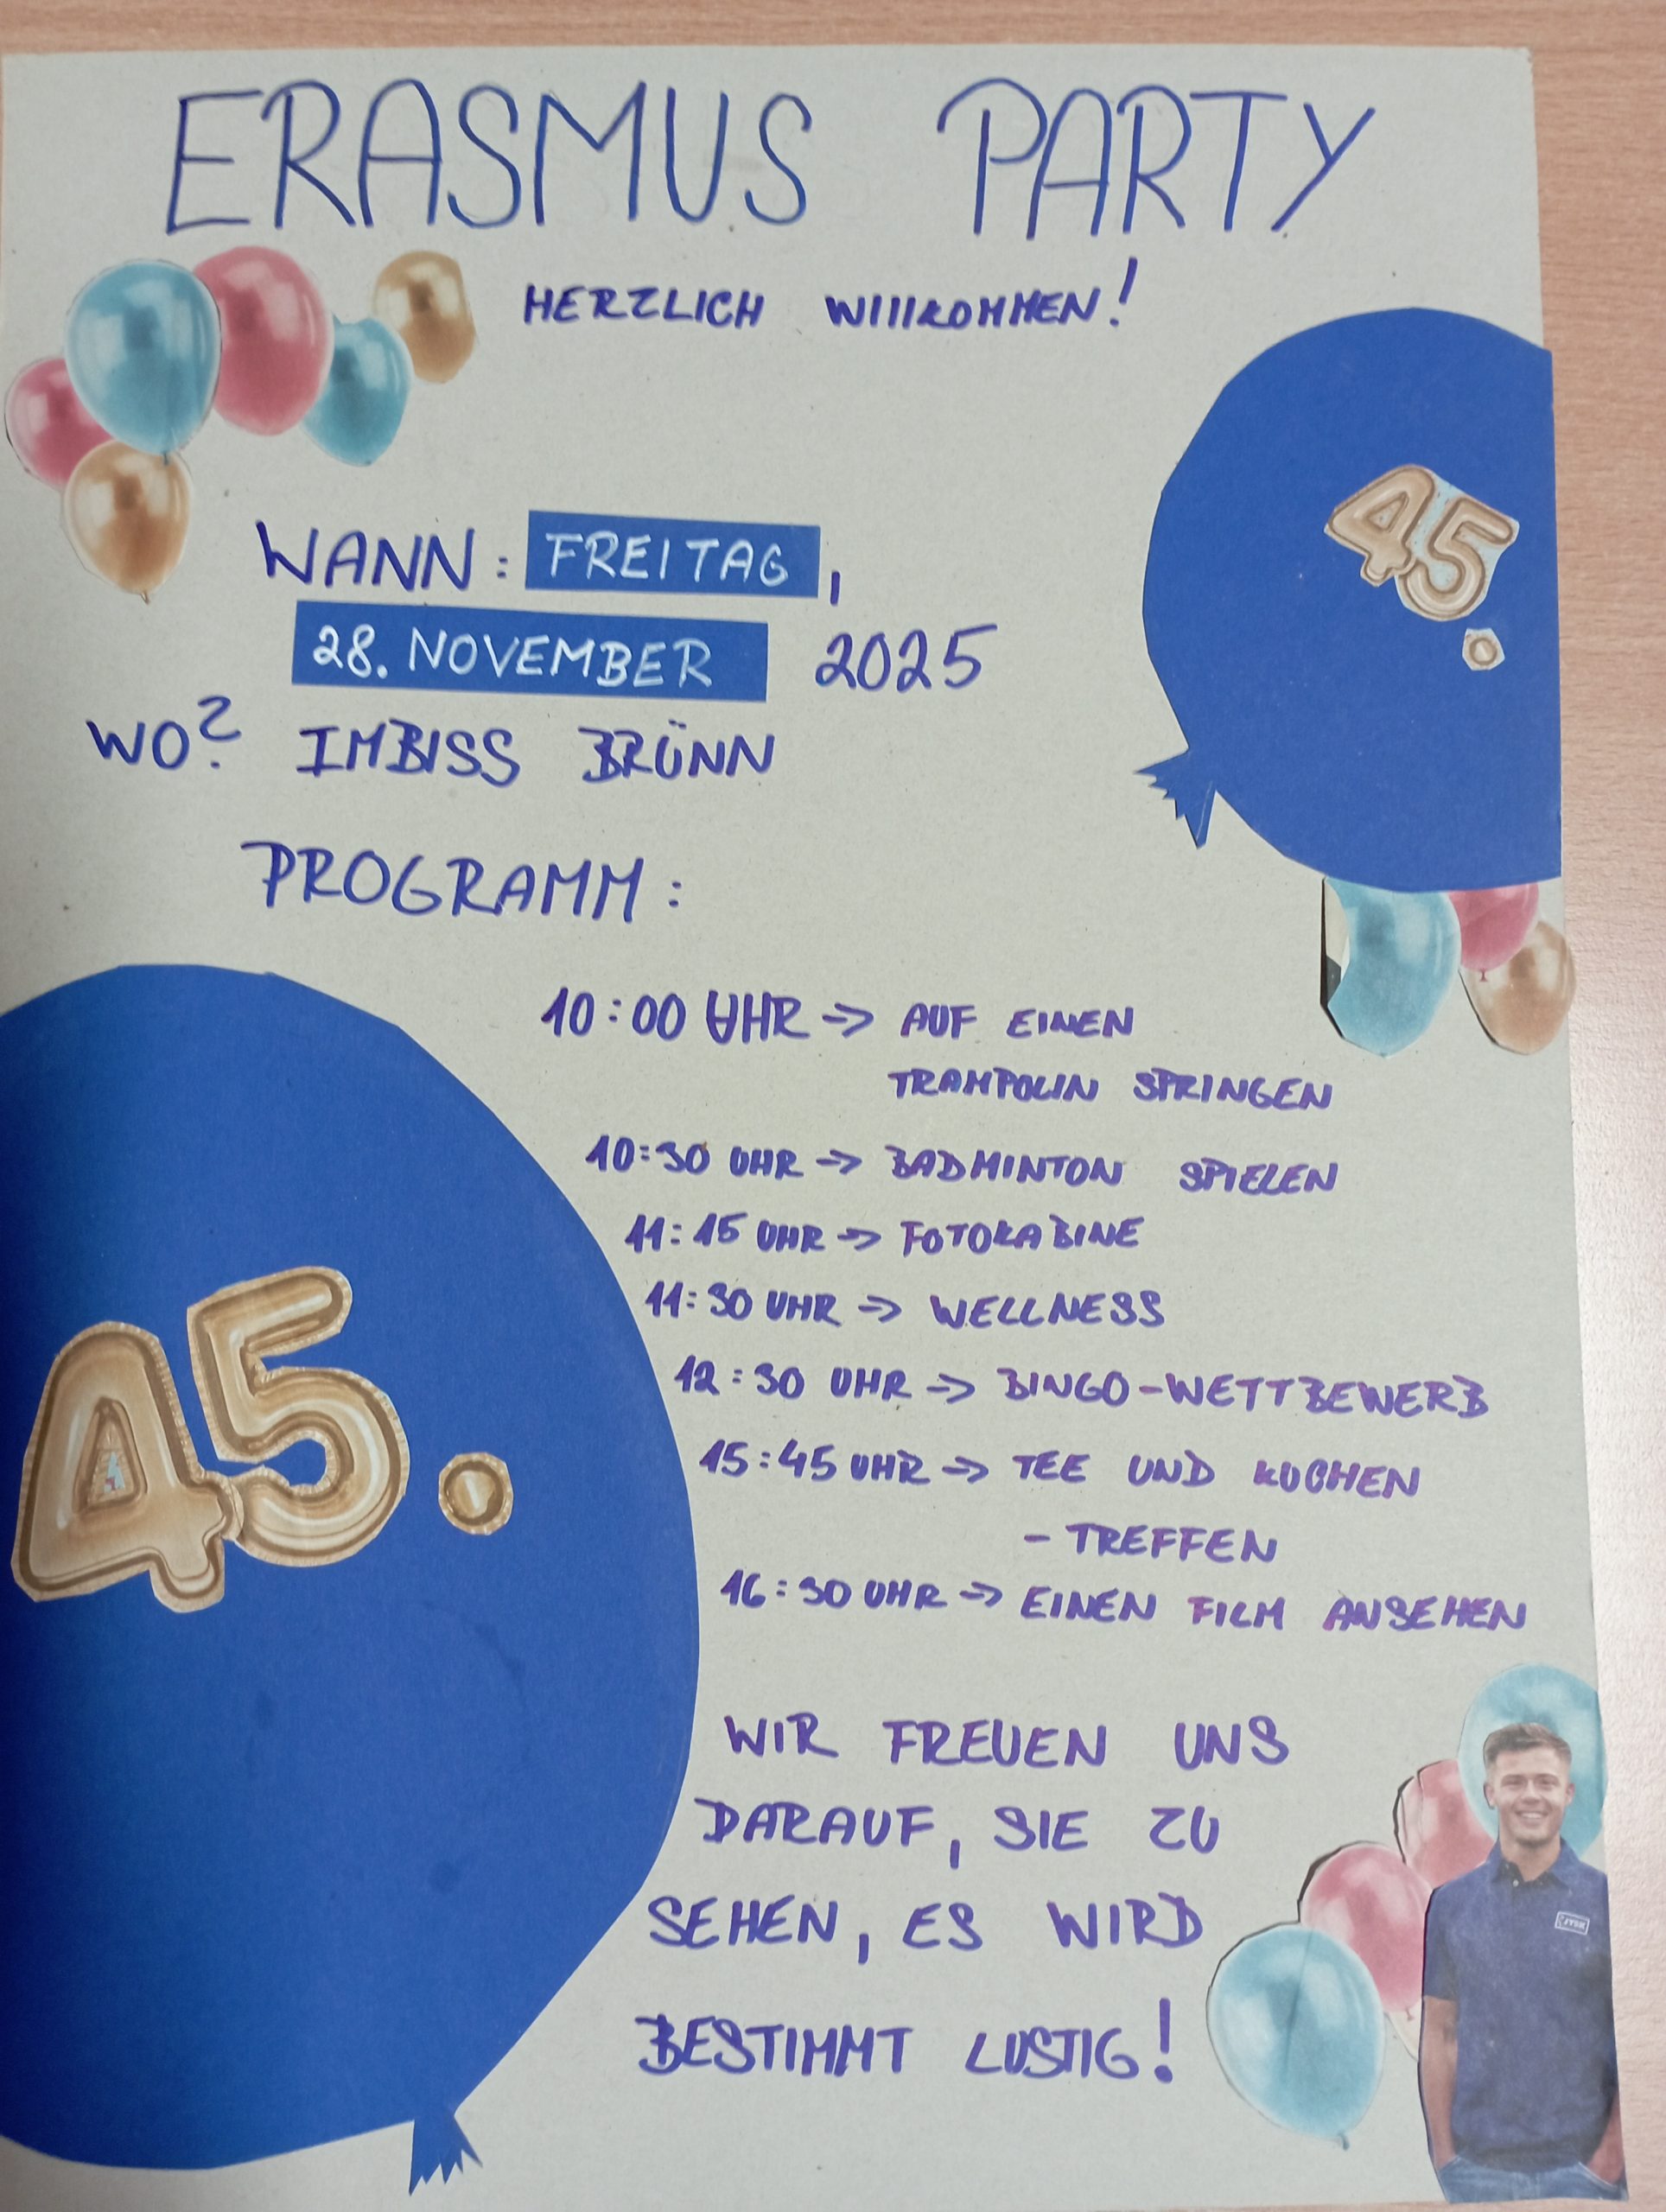 ERASMUS PARTY
HERZLICH WIllKOMMEN!
45.
WANN: FREITAG,
28. NOVEMBER 2025
WO? IMBISS BRÜNN
PROGRAMM:
10:00 UHR -> AUF EINEN
TRAMPOLIN SPRINGEN
10:30 UHR -> BADMINTON SPIELEN
11:15 UHR -> FOTOKABINE
11:30 UHR -> WELLNESS
12:30 UHR -> BINGO-WETTBEWERB
15:45 UHR -> TEE UND KUCHEN
- TREFFEN
16:30 UHR -> EINEN FILM ANSEHEN
45.
WIR FREUEN UNS
DARAUF, SIE ZU
SEHEN, ES WIRD
BESTIMMT LUSTIG!
JYSK